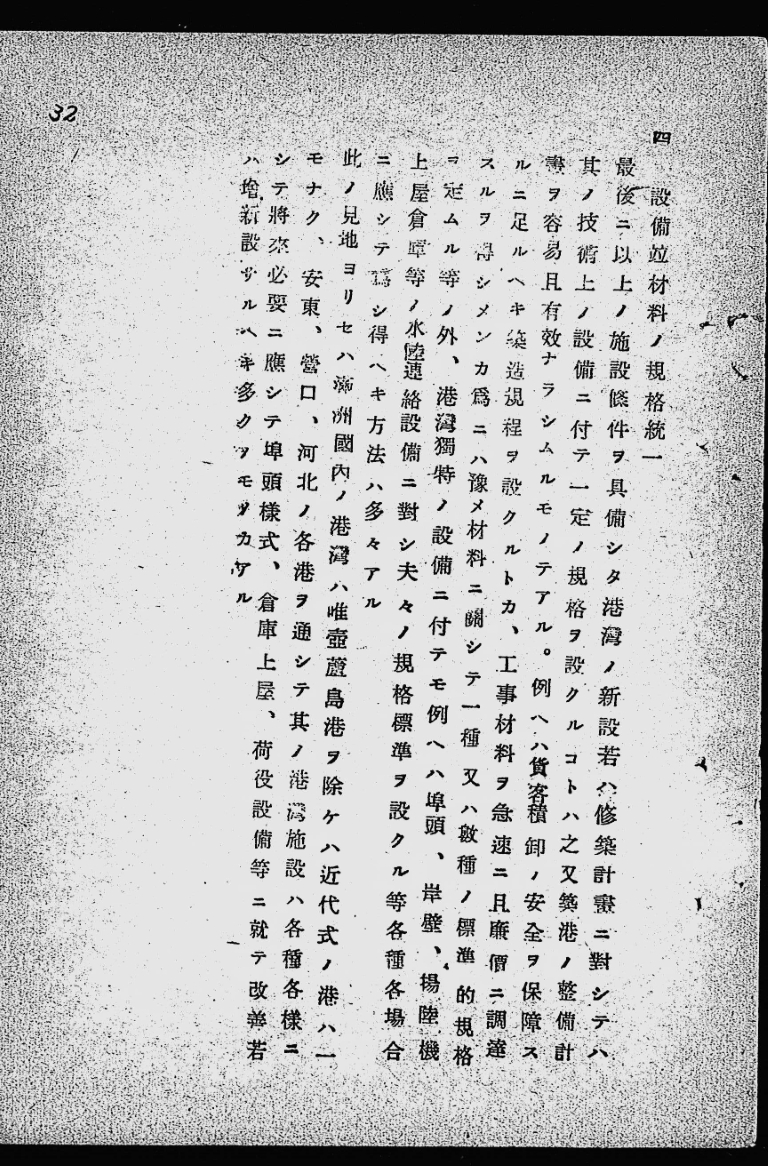 32
四　設備竝材料ノ規格統一
最後ニ以上ノ施設條件ヲ具備シタ港灣ノ新設若ハ修築計畫ニ對シテハ
其ノ技術上ノ設備ニ付テ一定ノ規格ヲ設クルコトハ之又築港ノ整備計
畫ヲ容易且有效ナラシムルモノテアル。例ヘハ貨客積卸ノ安全ヲ保障ス
ルニ足ルヘキ築造規程ヲ設クルトカ、工事材料ヲ急速ニ且廉價ニ調達
スルヲ得シメンカ爲ニハ豫メ材料ニ關シテ一種又ハ數種ノ標準的規格
ヲ定ムル等ノ外、港灣獨特ノ設備ニ付テモ例ヘハ埠頭、岸壁、揚陸機
上屋倉庫等ノ水陸連絡設備ニ對シ夫々ノ規格標準ヲ設クル等各種各場合
ニ應シテ爲シ得ヘキ方法ハ多々アル
此ノ見地ヨリセハ滿洲國內ノ港灣ハ唯壺蘆島港ヲ除ケハ近代式ノ港ハ一
モナク、安東、營口、河北ノ各港ヲ通シテ其ノ港灣施設ハ各種各樣ニ
シテ將來必要ニ應シテ埠頭樣式、倉庫上屋、荷役設備等ニ就テ改善若
ハ增新設サルヘキ多クヲモノカアル